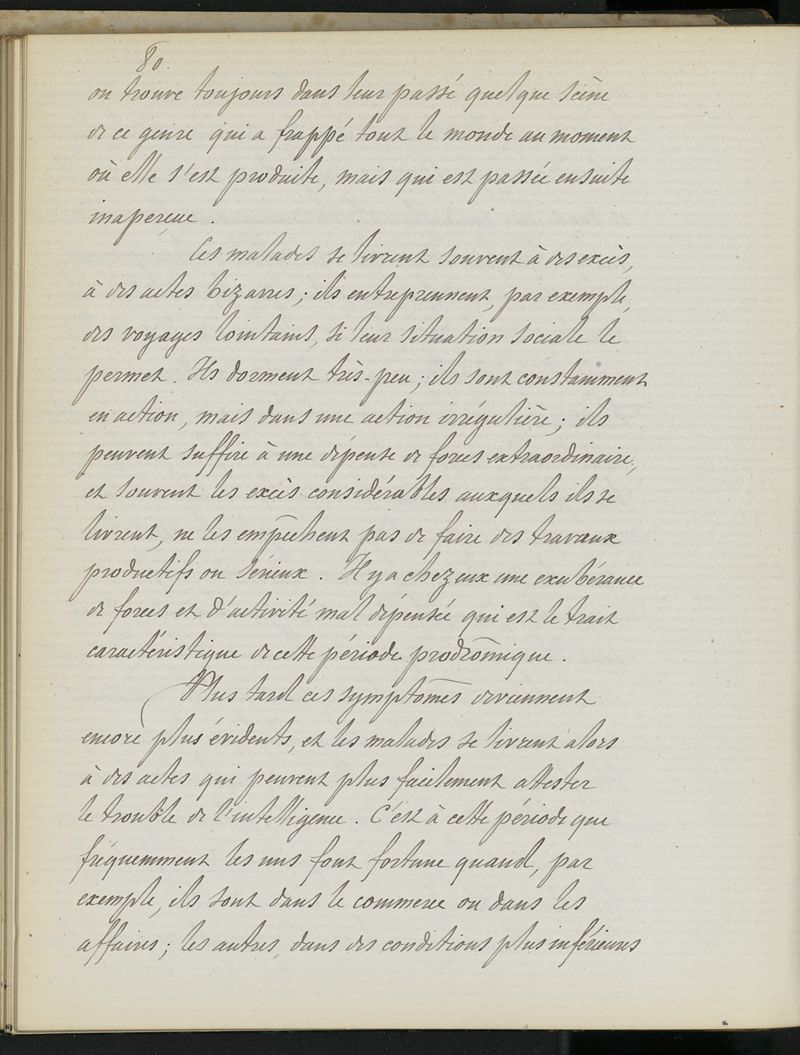 80.
on trouve toujours dans leur passé quelque scène
de ce genre qui a frappé tout le monde au moment
où elle s'est produite, mais qui est passée ensuite
inaperçue.
Ces malades se livrent souvent à des excès,
à des actes bizarres; ils entreprennent, par exemple,
des voyages lointains, si leur situation sociale le
permet. Ils dorment très-peu; ils sont constamment
en action, mais dans une action irrégulière; ils
peuvent suffire à une dépense de forces extraordinaire,
et souvent les excès considérables auxquels ils se
livrent, ne les empêchent pas de faire des travaux
productifs ou sérieux. Il y a chez eux une exubérance
de forces et d'activité mal dépensée qui est le trait
caractéristique de cette période prodrômique.
Plus tard ces symptômes deviennent
encore plus évidents, et les malades se livrent alors
à des actes qui peuvent plus facilement attester
le trouble de l'intelligence. C'est à cette période que
fréquemment les uns font fortune quand, par
exemple, ils sont dans le commerce ou dans les
affaires; les autres, dans des conditions plus inférieures